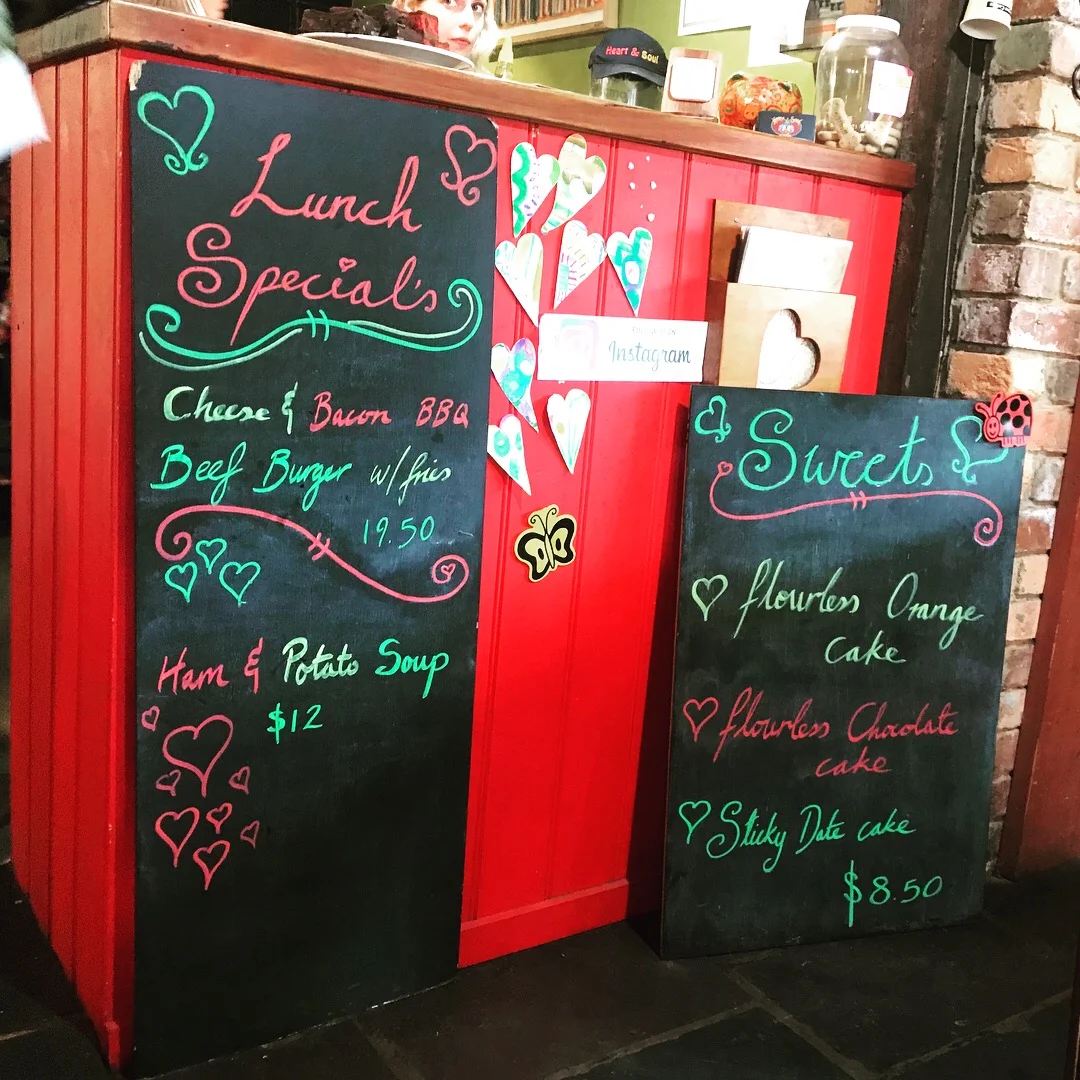 Heart & Soul
Lunch
Special's
Cheese & Bacon BBQ
Beef Burger w/fries
19.50
Ham & Potato Soup
$12
Instagram
Sweets
flourless Orange
cake
flourless Chocolate
cake
Sticky Date cake
$8.50